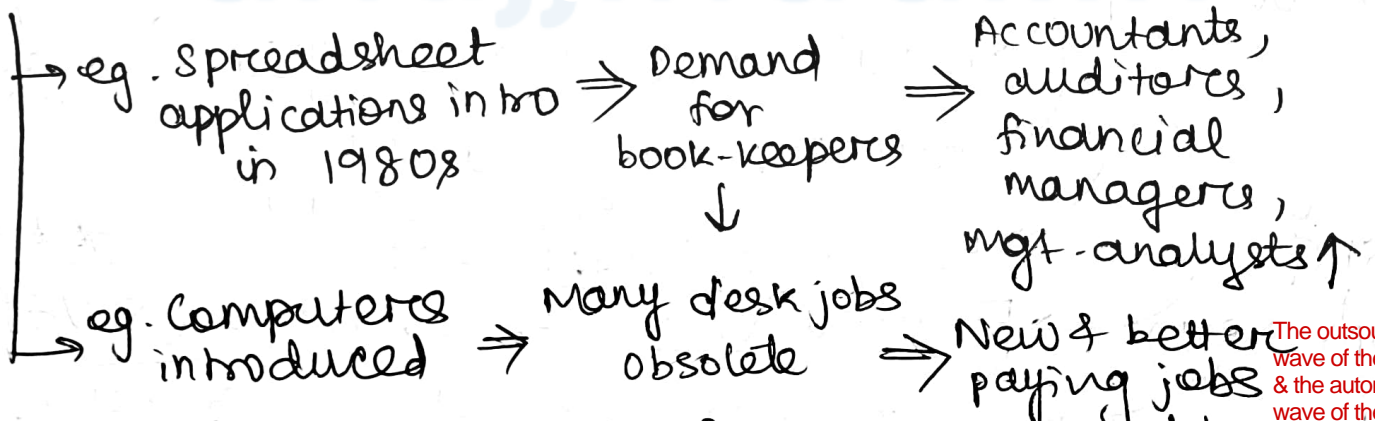 → eg. Spreadsheet applications intro in 1980s ⇒ Demand for book-keepers ↓ ⇒ Accountants, auditors, financial managers, mgt-analysts ↑
→ eg. Computers introduced ⇒ Many desk jobs obsolete ⇒ New & better paying jobs
The outsou
wave of the
& the autor
wave of the